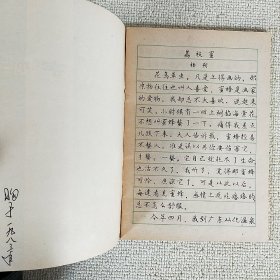 荔枝蜜
杨朔
花鸟草虫，凡是上得画的，那
原物往往也叫人喜爱。蜜蜂是画家
的爱物，我却总不大喜欢。说起来
可笑，小时候有一回上树掐海棠花，
不想叫蜜蜂螫了一下，痛得我差点
儿跌下来。大人告诉我，蜜蜂轻易
不螫人，准是误以为你要伤害它，
才螫。一螫，它自己就耗尽了生命，
也活不久了。我听了，觉得那蜜蜂
可怜，原谅它了。可是从此以后，
每逢看见蜜蜂，感情上疙疙瘩瘩的，
总不怎么舒服。
今年四月，我到广东从化温泉